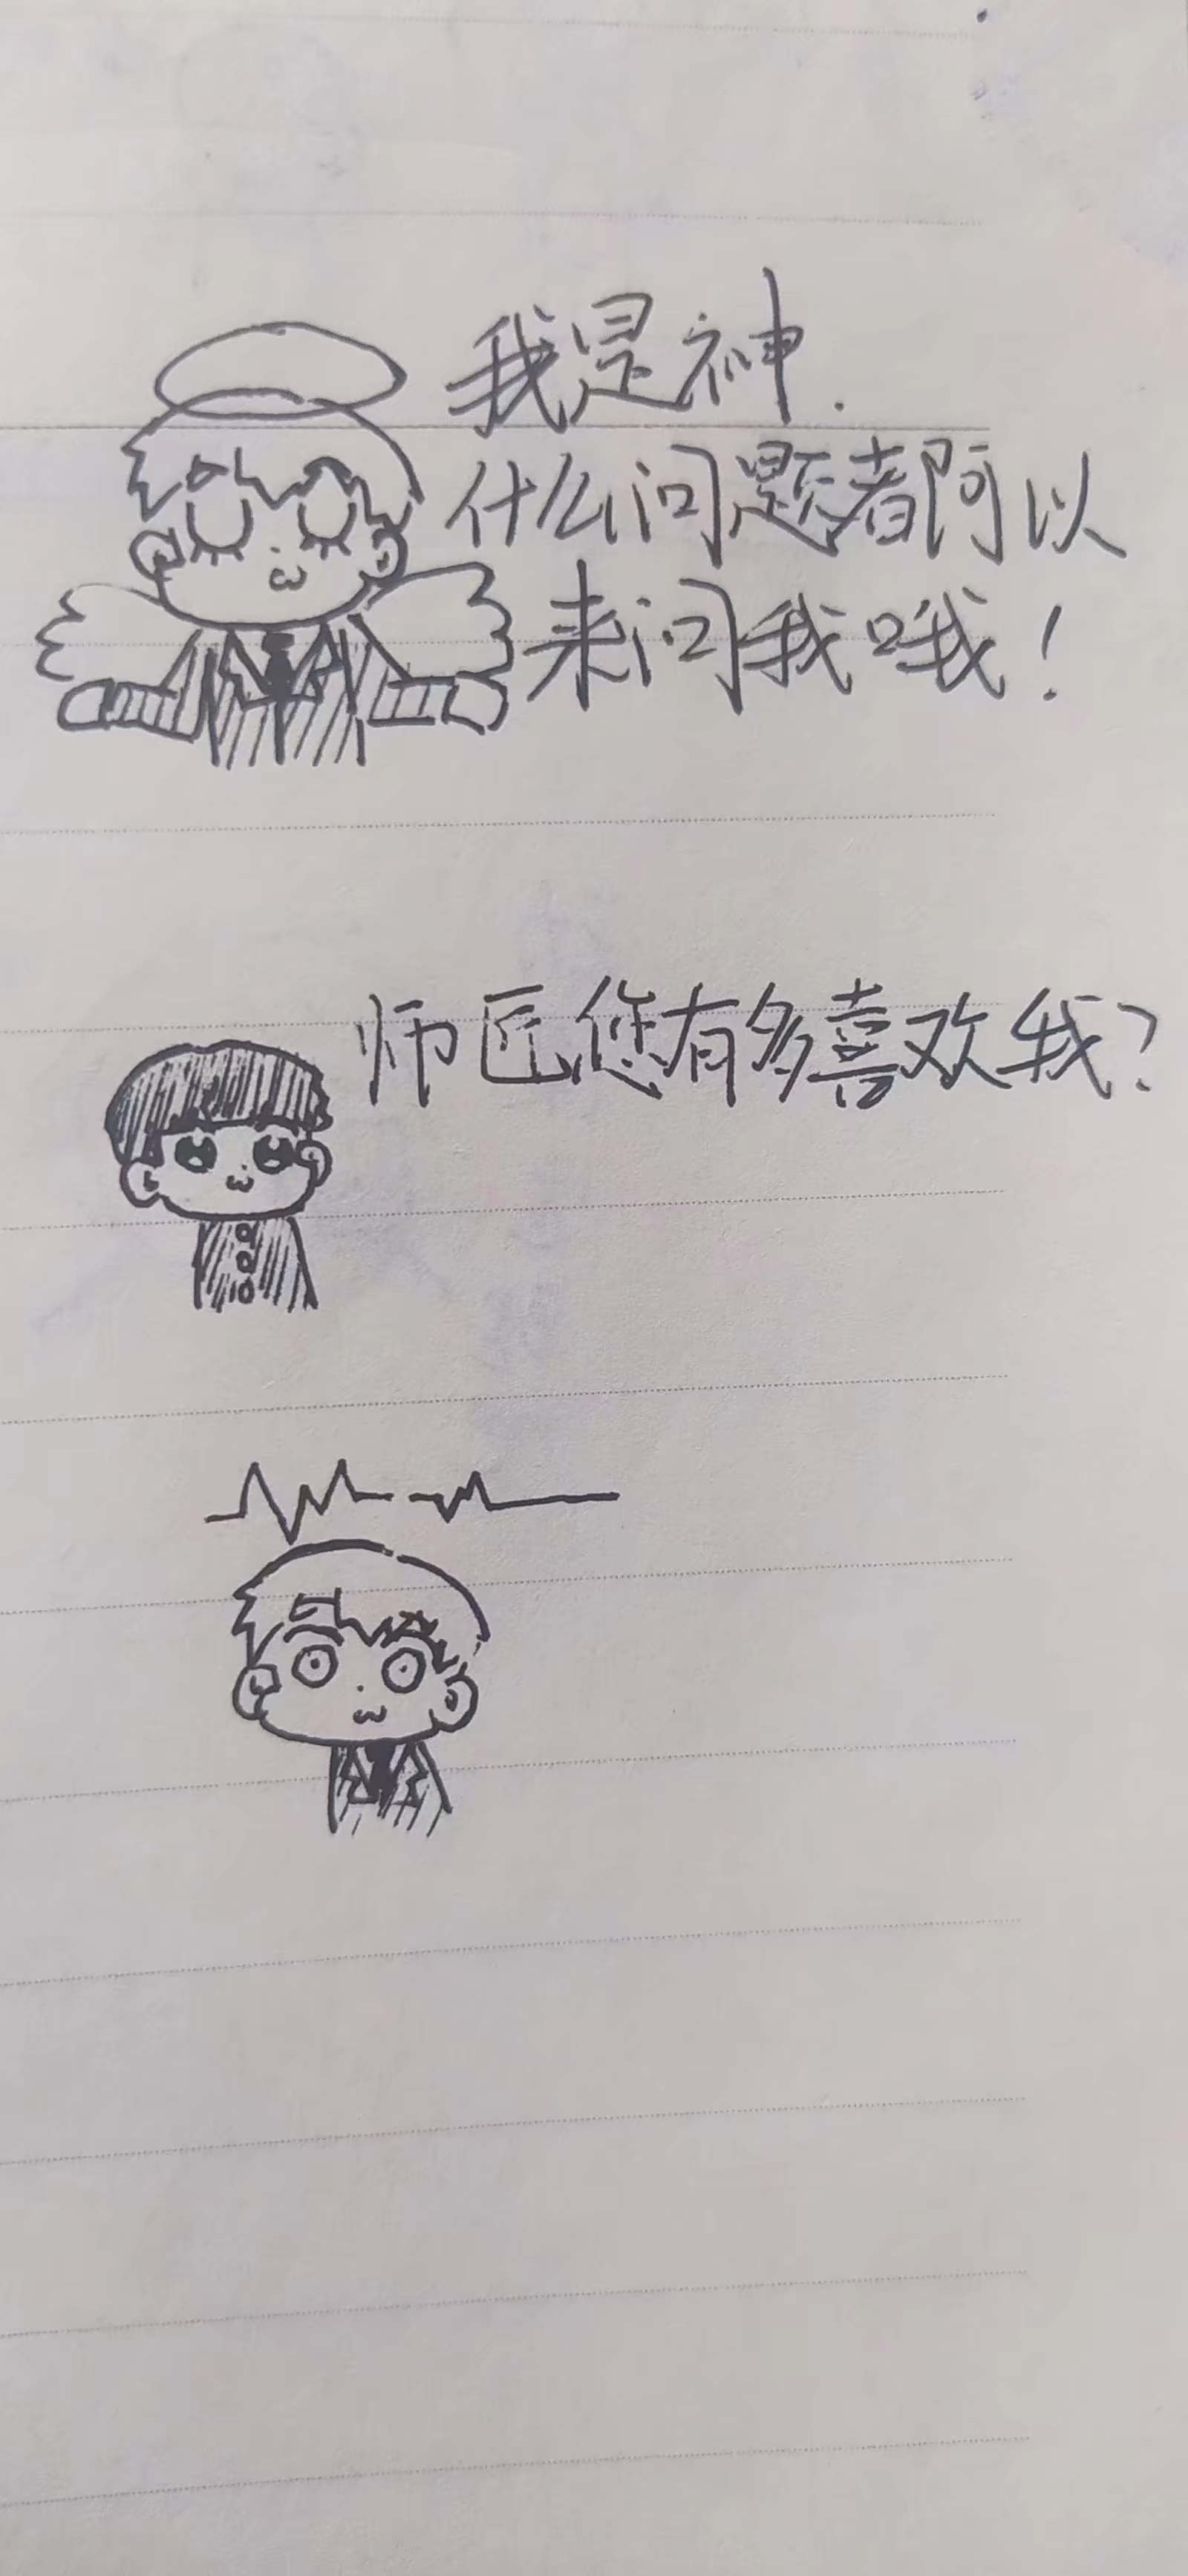 我是神.
什么问题都可以
来问我哦!
师匠您有多喜欢我?